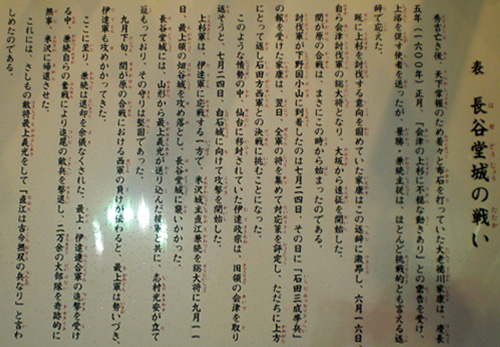 表 長谷堂城の戦い
秀吉亡き後、天下掌握のため着々と布石を打っていた大老徳川家康は、慶長
五年(一六〇〇年)正月、「会津の上杉に不穏な動きあり」との密告を受け、
上洛を促す使者を送ったが、景勝・兼続主従は、ほとんど挑戦的とも言える返
辞で応えた。
既に上杉を討伐する意向を固めていた家康はこの返辞に激昂し、六月一六日、
自ら会津討伐軍の総大将となり、大坂から遠征を開始した。
関が原の合戦は、まさにこの時から始まったのである。
討伐軍が下野国小山に到着したのは七月二四日、その日に「石田三成挙兵」
の報を受けた家康は、翌日、全軍の将を集めて対応策を評定し、ただちに上方
にとって返し石田方西軍との決戦に挑むことになった。
このような情勢の中、仙台に移封されていた伊達政宗は、旧領の会津を取り
返そうと、七月二四日、白石城に向けて攻撃を開始した。
上杉軍は、伊達軍に応戦する一方で、米沢城主直江兼続を総大将に九月一一
日、最上領の畑谷城を攻め落とし、長谷堂城に襲いかかった。
長谷堂城には、山形から最上義光が送り込んだ援軍と共に、志村光安が立て
籠もっており、その守りは堅固であった。
九月下旬、関が原の合戦における西軍の負けが伝わると、最上軍は勢いづき、
伊達軍も攻めかかってきた。
ここに至り、兼続は退却を余儀なくされた。最上・伊達連合軍の追撃を受け
る中、兼続自らの奮戦により追尾の敵兵を撃退し、二万余の大部隊を奇跡的に
無事、米沢に帰還させた。
これには、さしもの敵将最上義光をして「直江は古今無双の兵なり」と言わ
しめたのである。